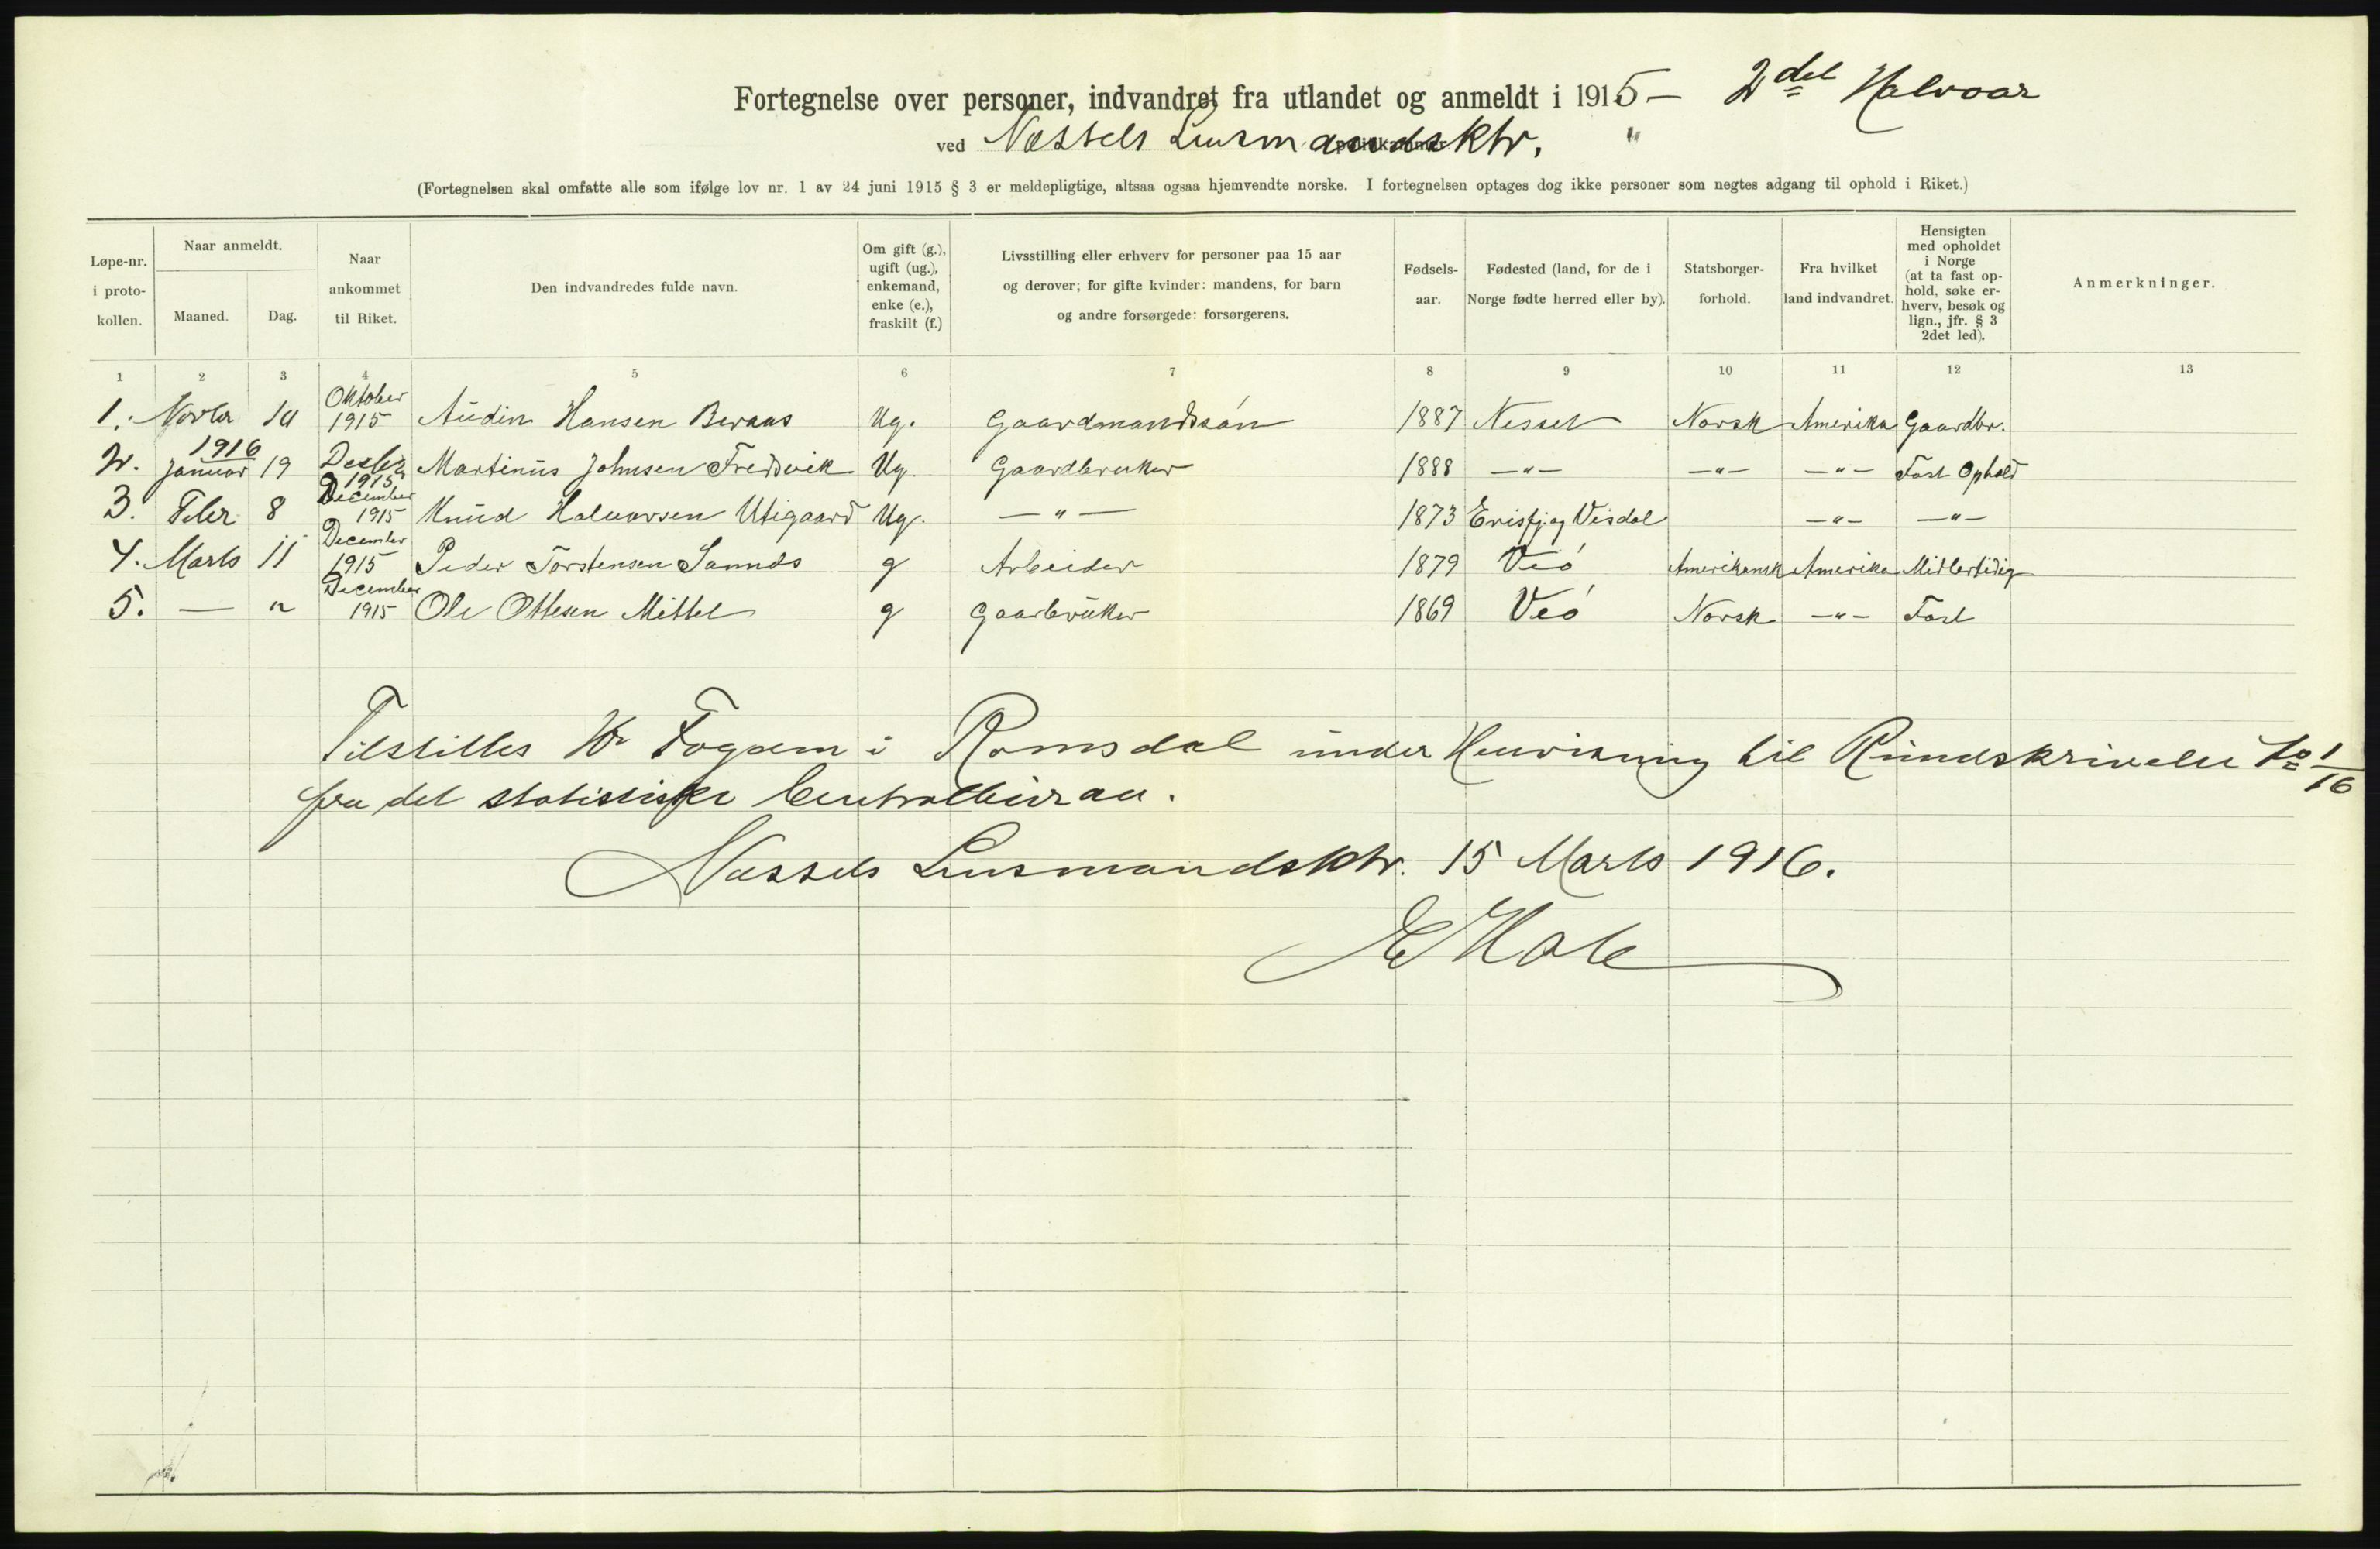 Fortegnelse over personer, indvandret fra utlandet og anmeldt i 1915 — 2det Halvaar
ved Næssets Lensmandsktr. "
(Fortegnelsen skal omfatte alle som ifølge lov nr. 1 av 24 juni 1915 § 3 er meldepligtige, altsaa ogsaa hjemvendte norske. I fortegnelsen optages dog ikke personer som negtes adgang til ophold i Riket.)
Løpe-nr. i proto-kollen.
Naar anmeldt.
Maaned. Dag.
Naar ankommet til Riket.
Den indvandredes fulde navn.
Om gift (g.), ugift (ug.), enkemand, enke (e.), fraskilt (f.)
Livsstilling eller erhverv for personer paa 15 aar og derover; for gifte kvinder: mandens, for barn og andre forsørgede: forsørgerens.
Fødsels-aar.
Fødested (land, for de i Norge fødte herred eller by).
Statsborger-forhold.
Fra hvilket land indvandret.
Hensigten med opholdet i Norge (at ta fast op-hold, søke er-hverv, besøk og lign., jfr. § 3 2det led).
Anmerkninger.
1 2 3 4 5 6 7 8 9 10 11 12 13
1. Novbr 10 Oktober 1915 Audin Hansen Beraas Ug. Gaardmandssøn 1887 Nesset Norsk Amerika Gaardbr.
2. 1916 Januar 19 Desbr 1915 Martinus Johnsen Fredsvik Ug. Gaardbruker 1888 —"— —"— —"— Fast Ophold
3. Febr 8 December 1915 Knud Halvorsen Utigaard Ug. —"— 1873 Erisfj og Visdal —"— —"—
4. Marts 11 December 1915 Peder Torstensen Sannds g Arbeider 1879 Veö Amerikansk Amerika Midlertidig
5. — " December 1915 Ole Ottesen Mittet g Gaarbruker 1869 Veö Norsk —"— Fast
Tilstilles Hr Fogden i Romsdal under Henvisning til Rundskrivelse No 1/16
fra det statistiske Centralbureau.
Næssets Lensmandsktr. 15 Marts 1916.